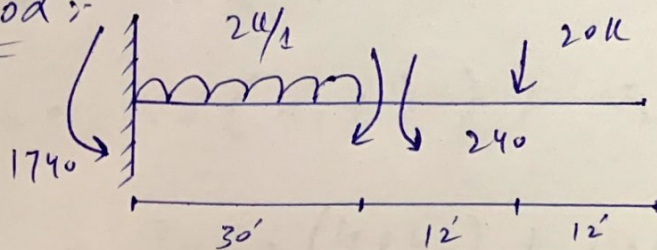 od :-
2k/1
20k
1740
240
30'
12'
12'